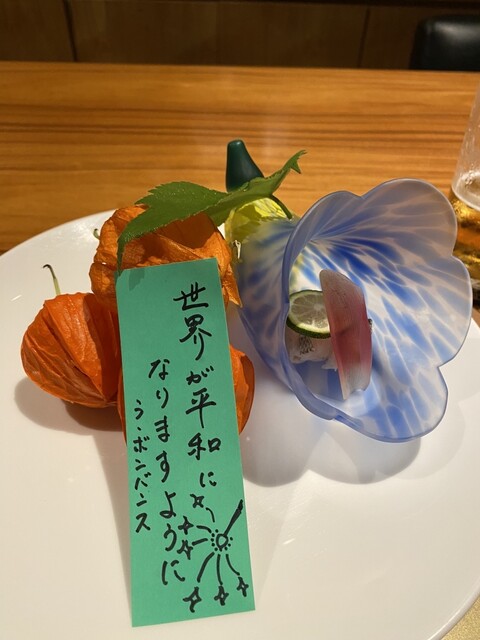 世界が平和に
なりますように
ラボンバンス